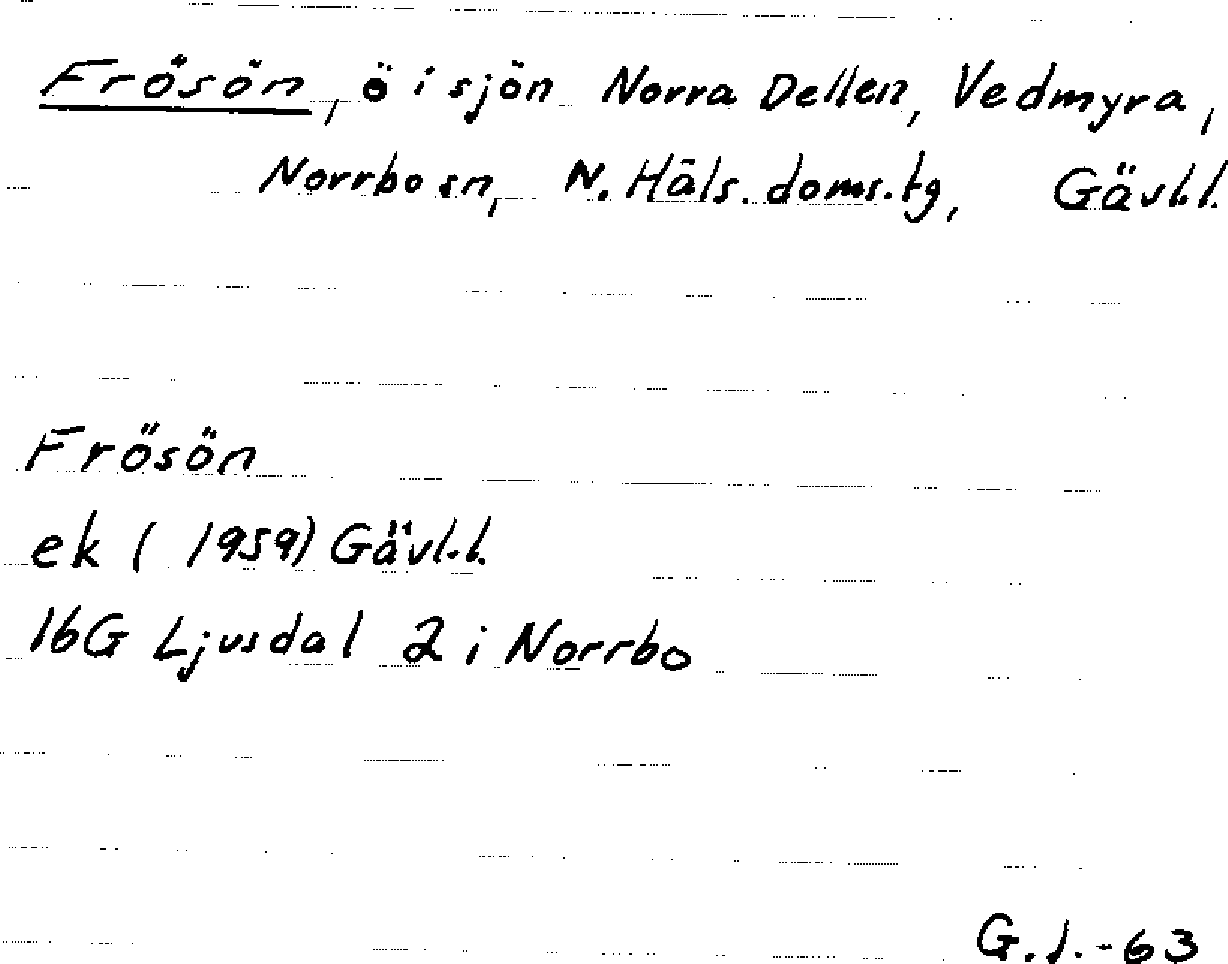 Frösön, ö i sjön Norra Dellen, Vedmyra,
Norrbo sn, N. Häls. doms. tg, Gävl.l.
Frösön
ek ( 1959) Gävl.l.
16G Ljusdal 2 i Norrbo
G.J.-63